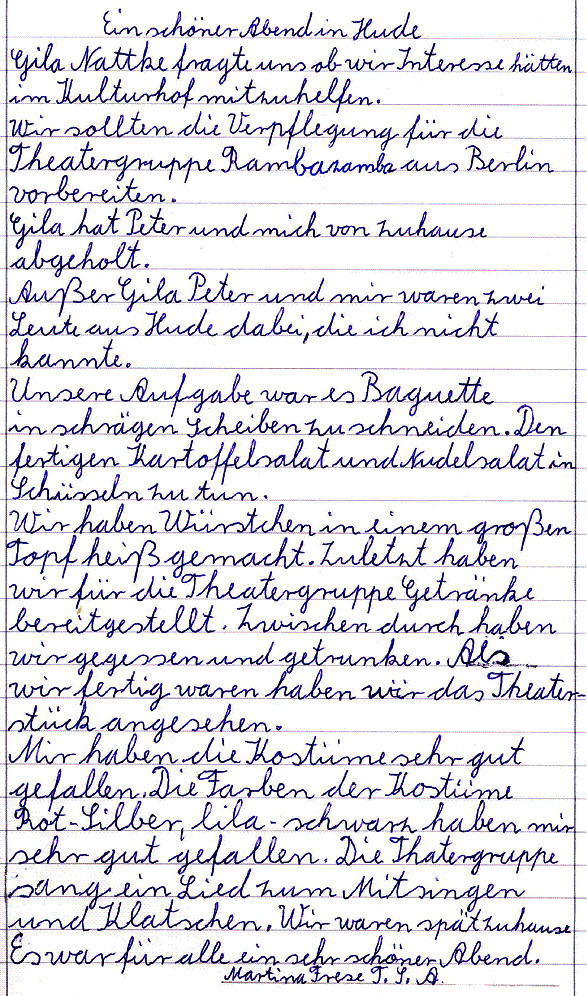 Ein schöner Abend in Hude
Gila Nattke fragte uns ob wir Interesse hätten
im Kulturhof mitzuhelfen.
Wir sollten die Verpflegung für die
Theatergruppe Rambazamba aus Berlin
vorbereiten.
Gila hat Peter und mich von zuhause
abgeholt.
Außer Gila Peter und mir waren zwei
Leute aus Hude dabei, die ich nicht
kannte.
Unsere Aufgabe war es Baguette
in schrägen Scheiben zu schneiden. Den
fertigen Kartoffelsalat und Nudelsalat in
Schüsseln zu tun.
Wir haben Würstchen in einem großen
Topf heiß gemacht. Zuletzt haben
wir für die Theatergruppe Getränke
bereitgestellt. Zwischen durch haben
wir gegessen und getrunken. Als
wir fertig waren haben wir das Theater-
stück angesehen.
Mir haben die Kostüme sehr gut
gefallen. Die Farben der Kostüme
Rot-Silber, lila-schwarz haben mir
sehr gut gefallen. Die Thatergruppe
sang ein Lied zum Mitsingen
und Klatschen. Wir waren spät zuhause
Es war für alle ein sehr schöner Abend.
Martina Frese T. S. A.